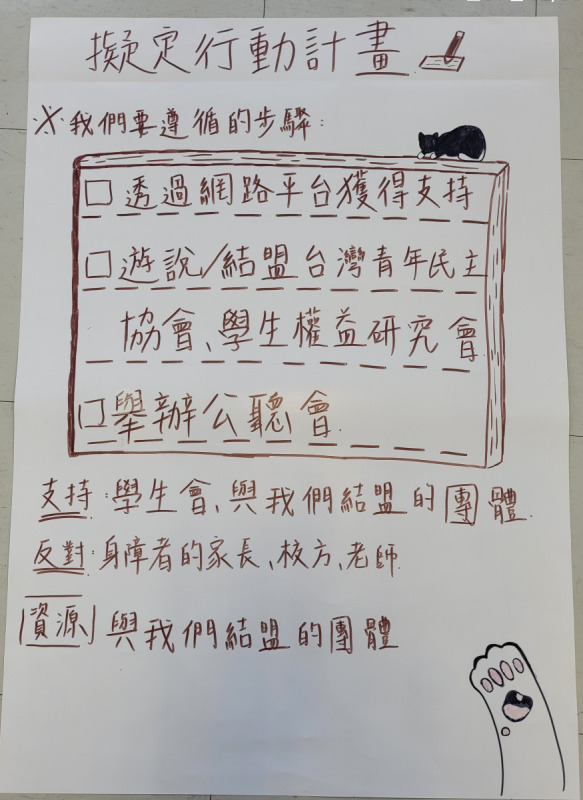 擬定行動計畫
※我們要遵循的步驟:
□ 透過網路平台獲得支持
□ 遊說/結盟台灣青年民主
協會、學生權益研究會
□ 舉辦公聽會.
支持:學生會、與我們結盟的團體.
反對:身障者的家長、校方、老師.
資源 與我們結盟的團體